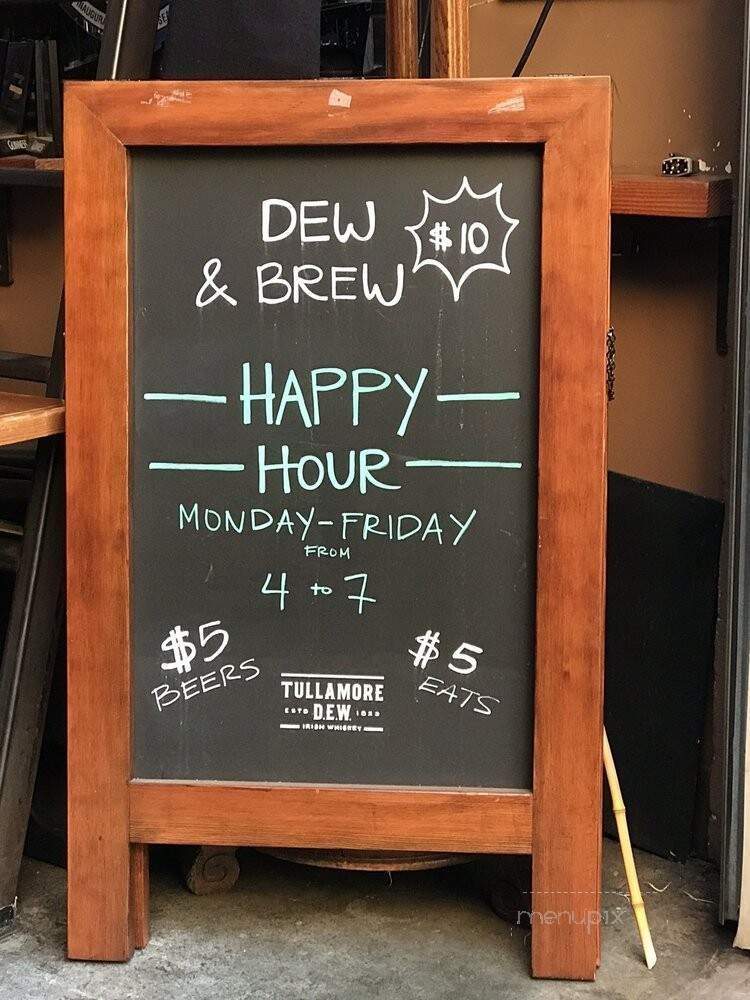 DEW
& BREW
$10
HAPPY
HOUR
MONDAY-FRIDAY
FROM
4 to 7
$5
BEERS
$5
EATS
TULLAMORE
ESTD D.E.W. 1829
IRISH WHISKEY
menupix